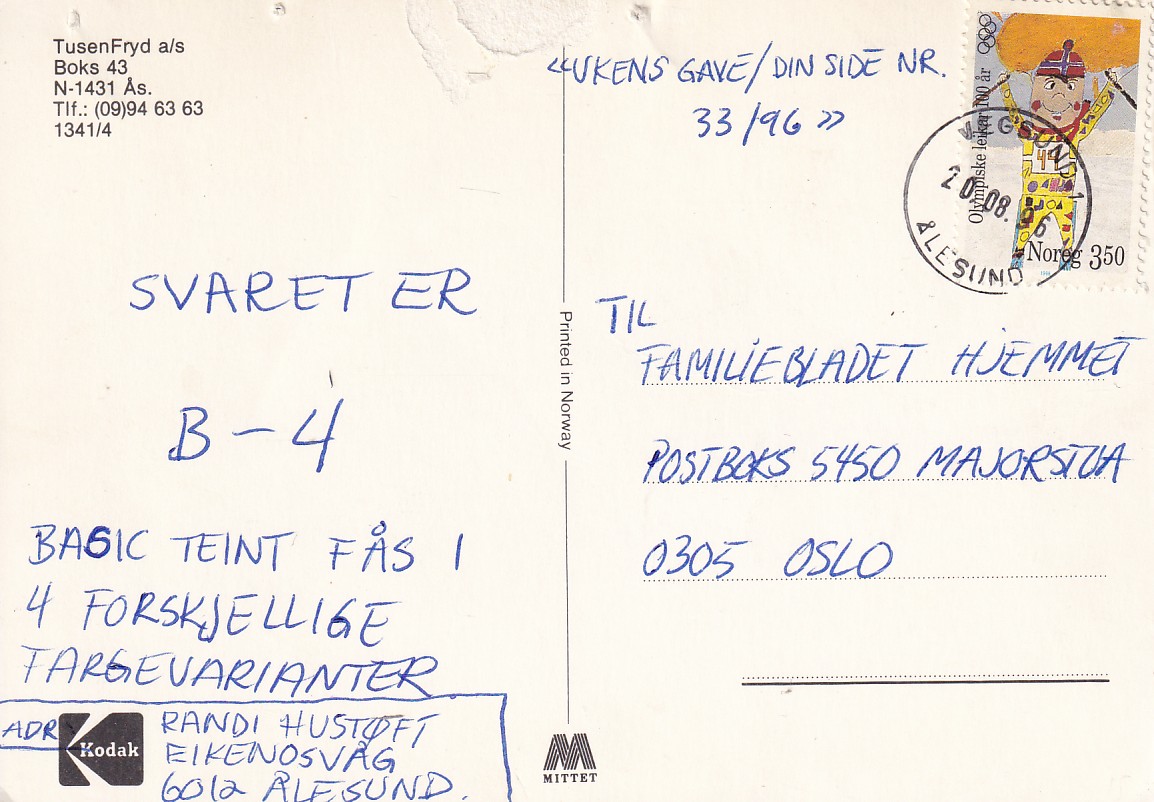 TusenFryd a/s
Boks 43
N-1431 Ås.
Tlf.: (09)94 63 63
1341/4
SVARET ER
B-4
BASIC TEINT FÅS I
4 FORSKJELLIGE
FARGEVARIANTER
ADR
Kodak
RANDI HUSTØFT
EIKENOSVÅG
6012 ÅLESUND.
Printed in Norway
MITTET
«UKENS GAVE/DIN SIDE NR.
33/96»
Olympiske leikar 100 år
44
Noreg 350
20.08.96
ÅLESUND
TIL
FAMILIEBLADET HJEMMET
POSTBOKS 5450 MAJORSTUA
0305 OSLO